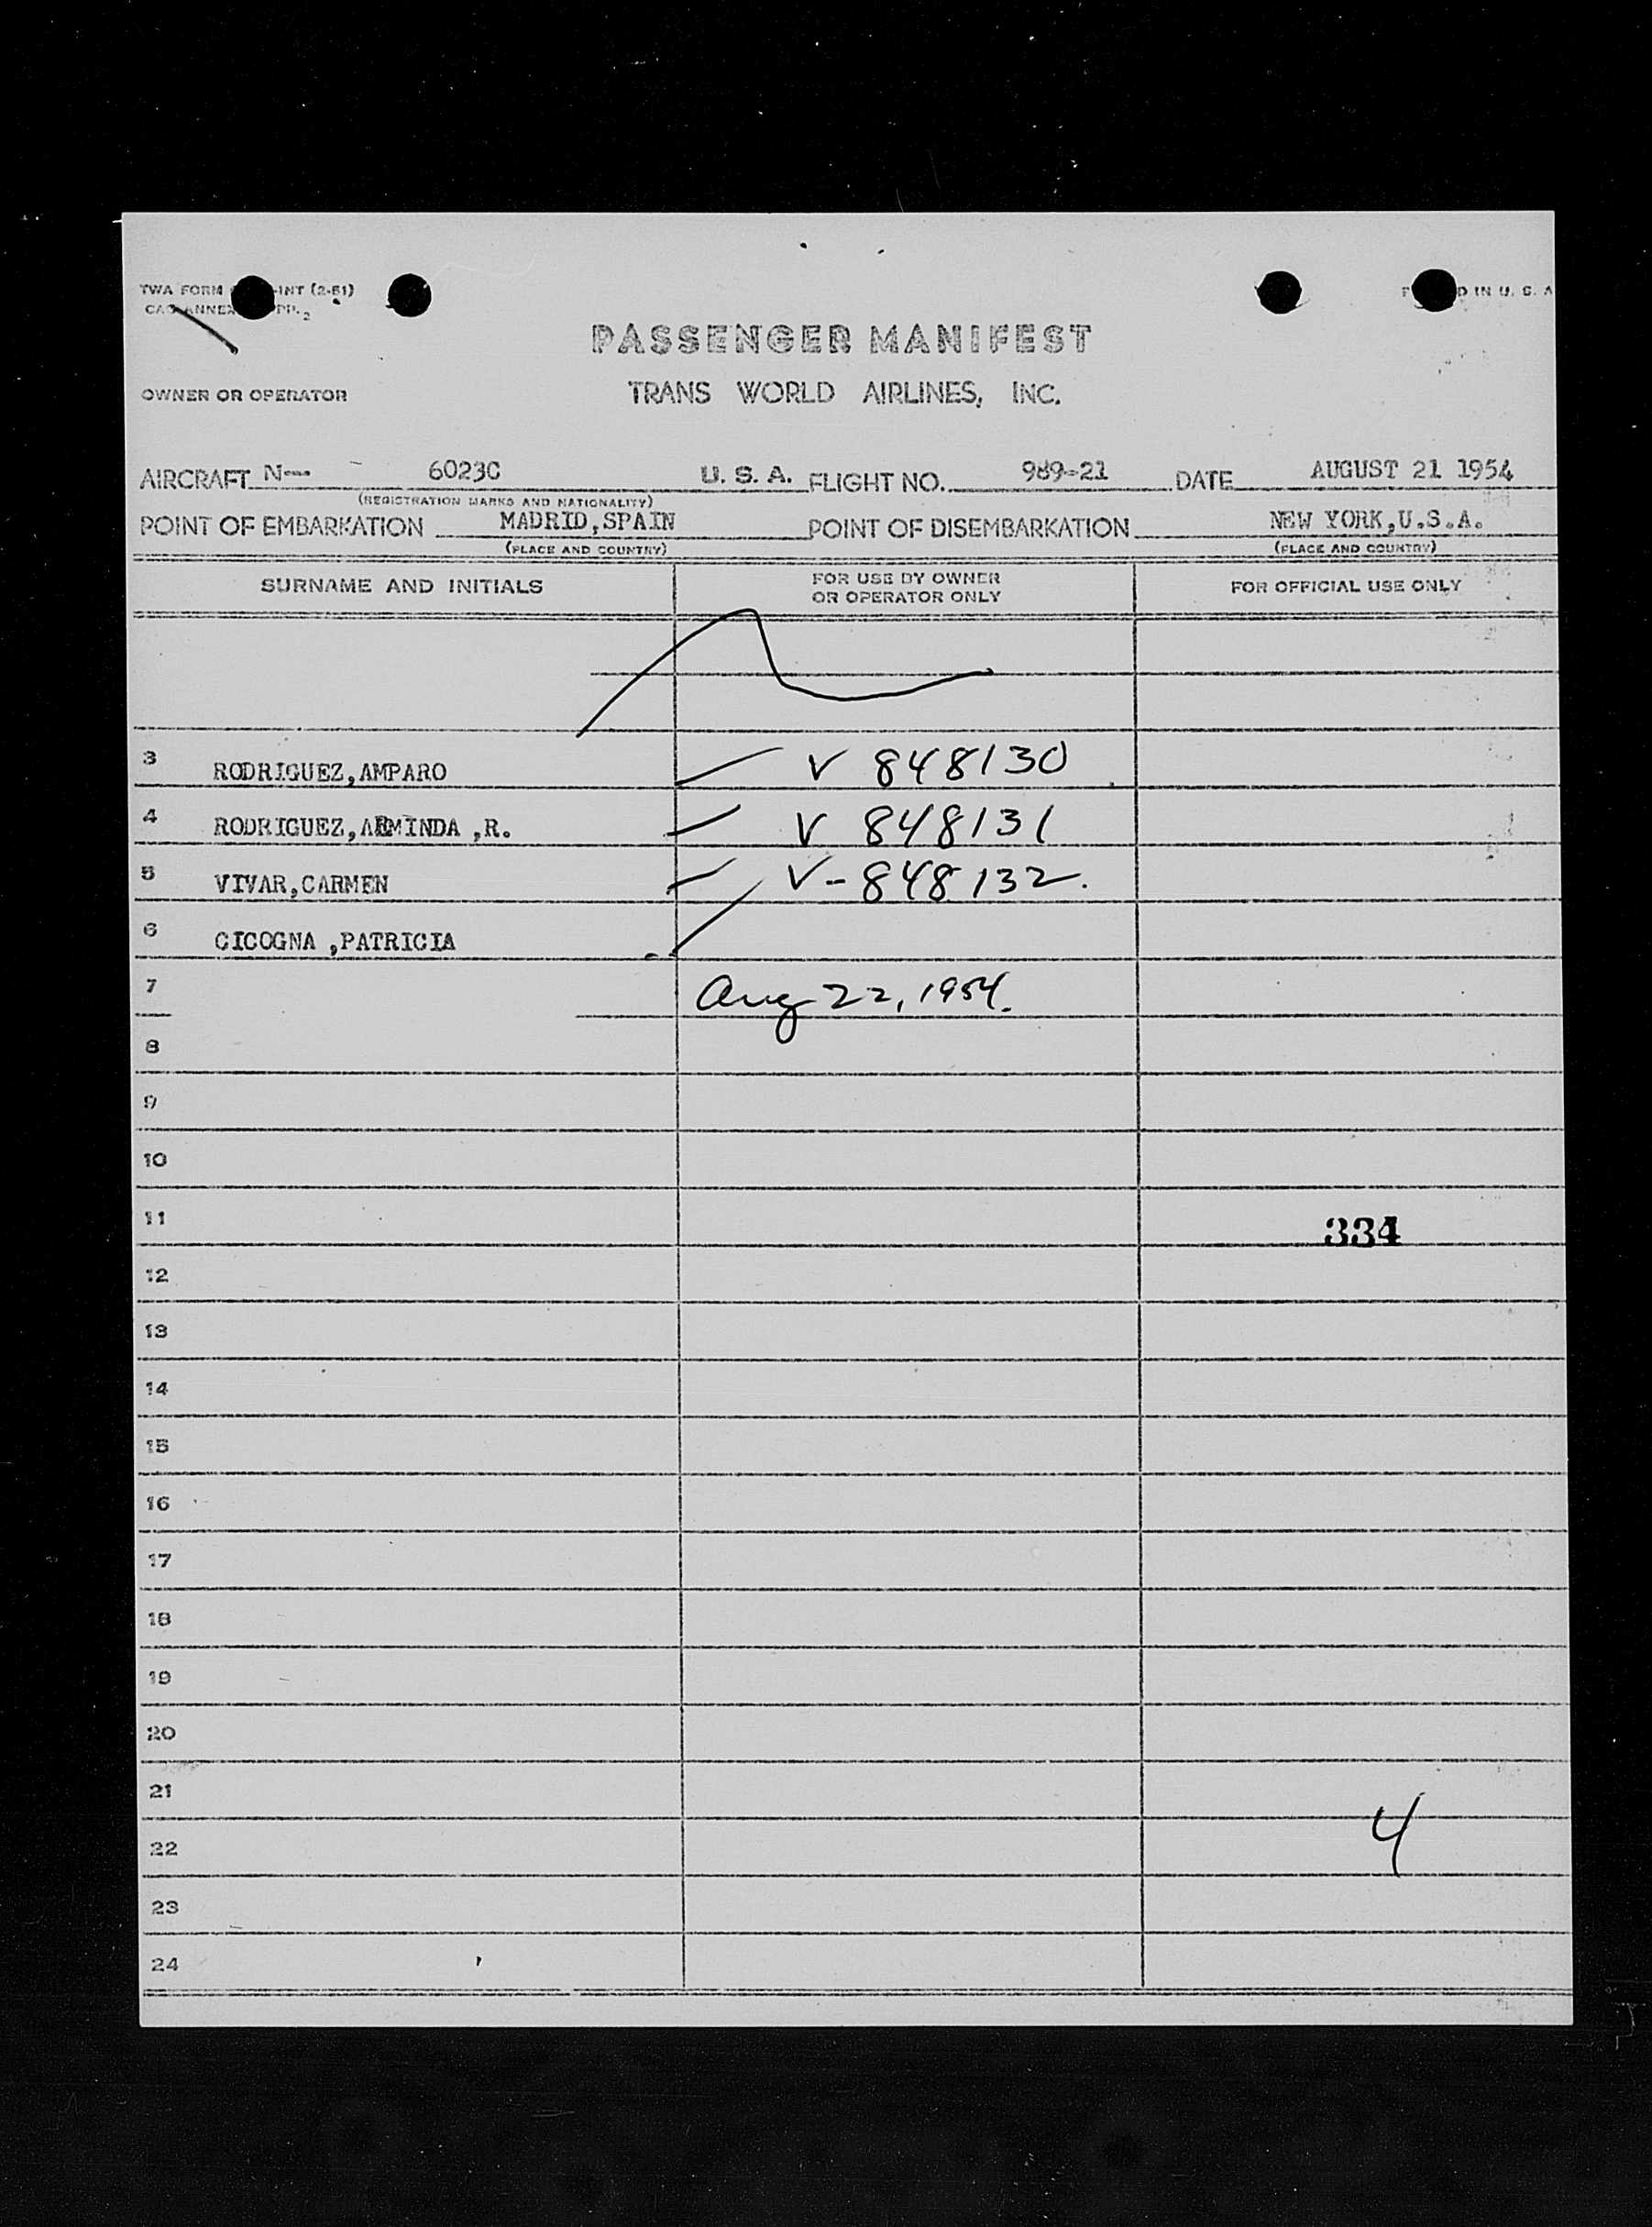 TWA FORM -INT (2-51)
CAO ANNEX PP. 2
D IN U. S. A
PASSENGER MANIFEST
OWNER OR OPERATOR TRANS WORLD AIRLINES, INC.
AIRCRAFT N— 6023C U. S. A. FLIGHT NO. 989-21 DATE AUGUST 21 1954
(REGISTRATION MARKS AND NATIONALITY)
POINT OF EMBARKATION MADRID,SPAIN POINT OF DISEMBARKATION NEW YORK,U.S.A.
(PLACE AND COUNTRY) (PLACE AND COUNTRY)
SURNAME AND INITIALS FOR USE BY OWNER OR OPERATOR ONLY FOR OFFICIAL USE ONLY
3 RODRIGUEZ,AMPARO V 848130
4 RODRIGUEZ,ARMINDA ,R. V 848131
5 VIVAR,CARMEN V-848132.
6 CICOGNA ,PATRICIA
7 Aug 22, 1954.
8
9
10
11 334
12
13
14
15
16
17
18
19
20
21
22 4
23
24